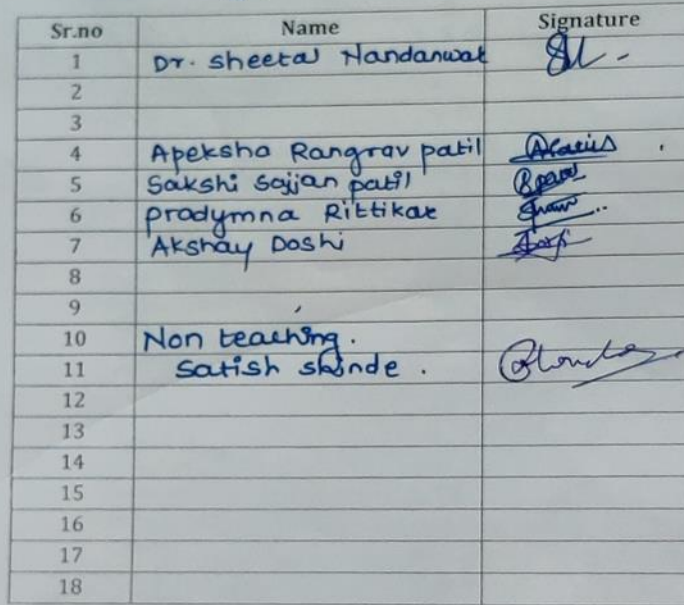 Sr.no Name Signature
1 Dr. Sheetal Nandanwar
2
3
4 Apeksha Rangrav patil
5 Sakshi Sajjan patil
6 pradymna Rittikar
7 Akshay Doshi
8
9
10 Non teaching.
11 Satish shinde.
12
13
14
15
16
17
18